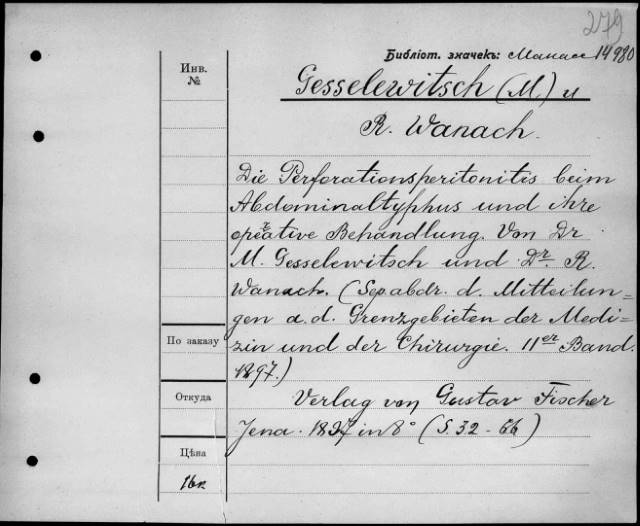 279
Библіот. значекъ: Манасс 14980
Инв.
№
Gesselewitsch (M.) и
R. Wanach.
Die Perforationsperitonitis beim
Abdominaltyphus und ihre
operative Behandlung. Von Dr
M. Gesselewitsch und Dr. R.
Wanach. (Sep. abdr. d. Mitteilun-
gen a. d. Grenzgebieten der Medi-
zin und der Chirurgie. II er Band.
1897.)
По заказу
Откуда
Verlag von Gustav Fischer
Jena. 1897 in 8° (S. 32-66)
Цѣна